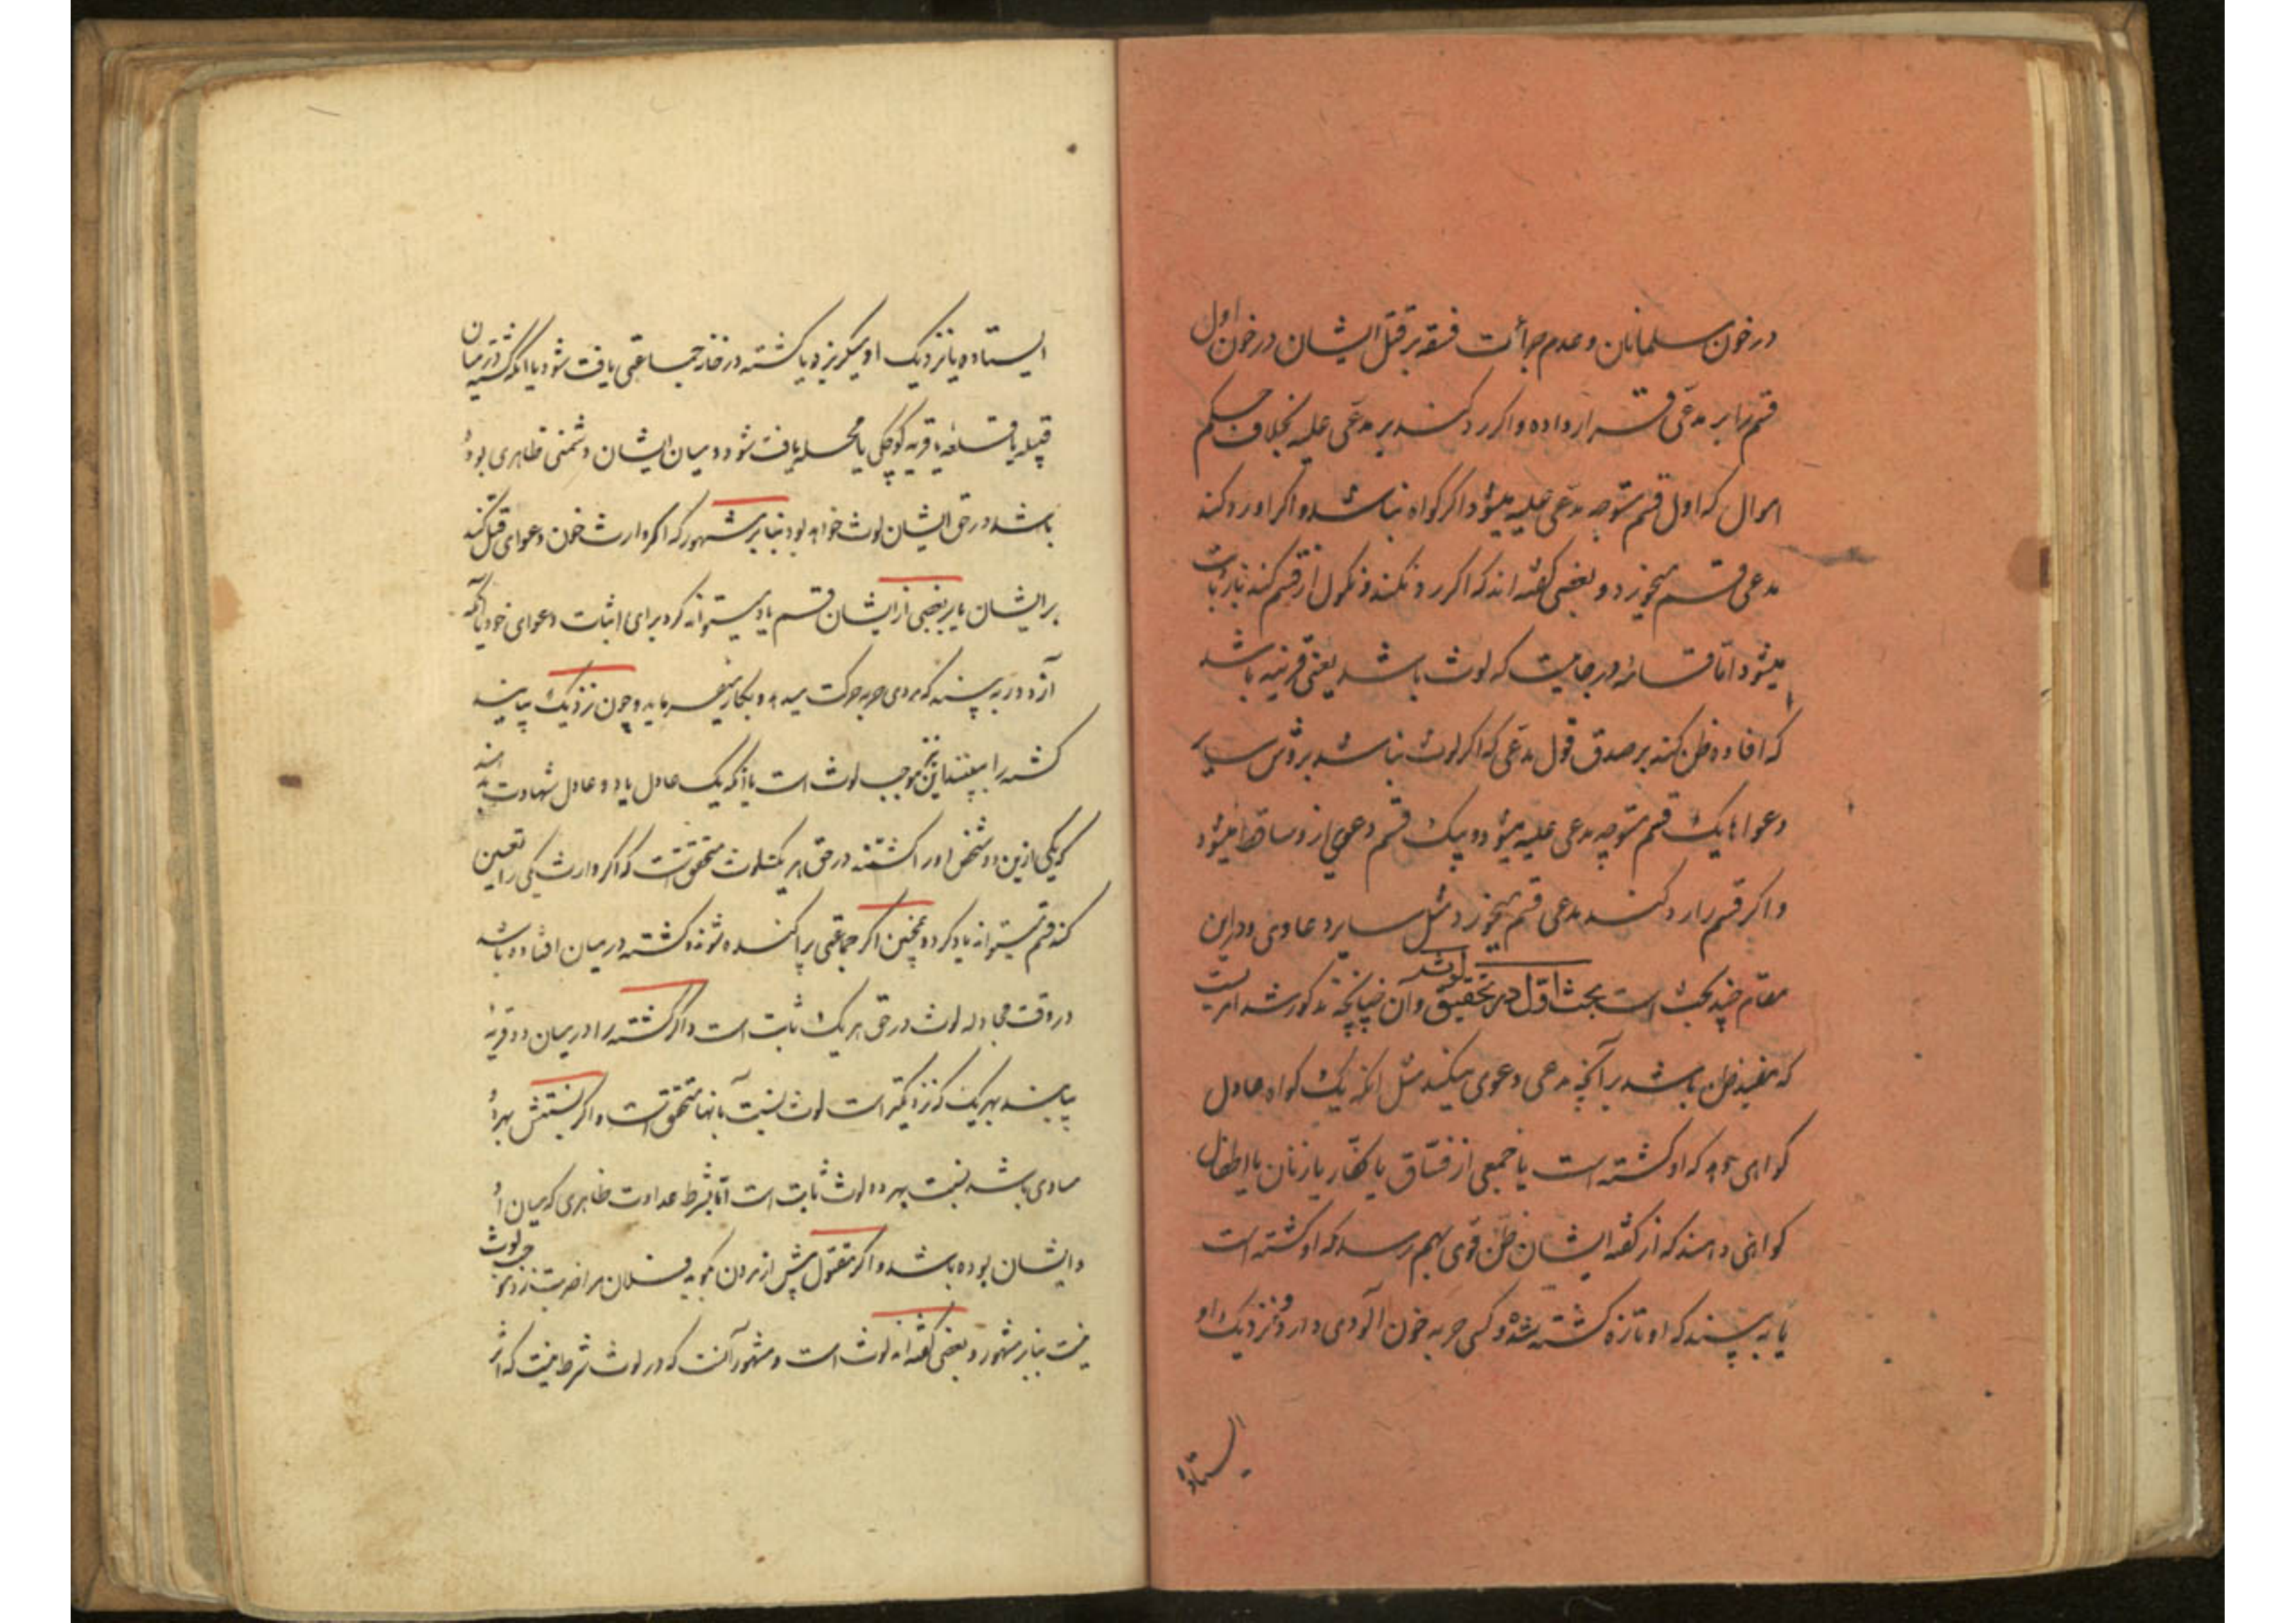 در خون مسلمانان و عدم جرأت فسقه بر قتل ایشان در خون اول
قسم را بر مدعی قرار داده و اگر رد کند بر مدعی علیه بخلاف حکم
اموال که اول قسم متوجه مدعی علیه میشود اگر گواه نباشد و اگر او رد کند
مدعی قسم میخورد و بعضی گفته اند که اگر رد نکند و نکول از قسم کند باز ثابت
میشود اما قسامه در جائیست که لوث باشد یعنی قرینه باشد
که افاده ظن کند بر صدق قول مدعی که اگر لوث نباشد بروش سایر
دعواها یک قسم متوجه مدعی علیه میشود و بیک قسم دعوی از و ساقط میشود
و اگر قسم را رد کند مدعی قسم میخورد مثل سایر دعاوی و در این
مقام چند بحث است بحث اول در تحقیق لوث و آن چنانچه مذکور شد امریست
که مفید ظن باشد بر آنچه مدعی دعوی میکند مثل انکه یک گواه عادل
گواهی دهد که او کشته است یا جمعی از فساق یا کفار یا زنان یا اطفال
گواهی دهند که از گفته ایشان ظن قوی بهم رسد که او کشته است
یا به بینند که او تازه کشته شده و کسی حربه خون آلودی دارد و نزدیک او
ایستاده
ایستاده یا نزدیک او میگریزد یا کشته در خانه جماعتی یافت شود یا انکه کشته در میان
قبیله یا قلعه یا قریه کوچکی یا محله یافت شود و میان ایشان دشمنی ظاهری بوده
باشد در حق ایشان لوث خواهد بود بنا بر مشهور که اگر وارث خون دعوای قتل کند
بر ایشان یا بر بعضی از ایشان قسم یاد میتواند کرد برای اثبات دعوای خود یا آنکه
از دور به بینند که مردی حربه حرکت میدهد و بکار میفرماید و چون نزدیک بیایند
کشته را ببینند این نیز موجب لوث است یا انکه یک عادل یا دو عادل شهادت بدهند
که یکی ازین دو شخص او را کشتند در حق هر یک لوث متحقق است که اگر وارث یکی را تعیین
کند قسم میتواند یاد کرد و همچنین اگر جماعتی پراکنده شوند و کشته در میان افتاده باشد
در وقت مجادله لوث در حق هر یک ثابت است و اگر کشته را در میان دو قریه
بیابند بهر یک که نزدیکتر است لوث نسبت بآنها متحقق است و اگر نسبتش بهر دو
مساوی باشد نسبت بهر دو لوث ثابت است اما بشرط عداوت ظاهری که میان او
و ایشان بوده باشد و اگر مقتول پیش از مردن بگوید فلان مرا ضربت زد موجب لوث
نیست بنا بر مشهور و بعضی گفته اند لوث است و مشهور آنست که در لوث شرط نیست که اثر